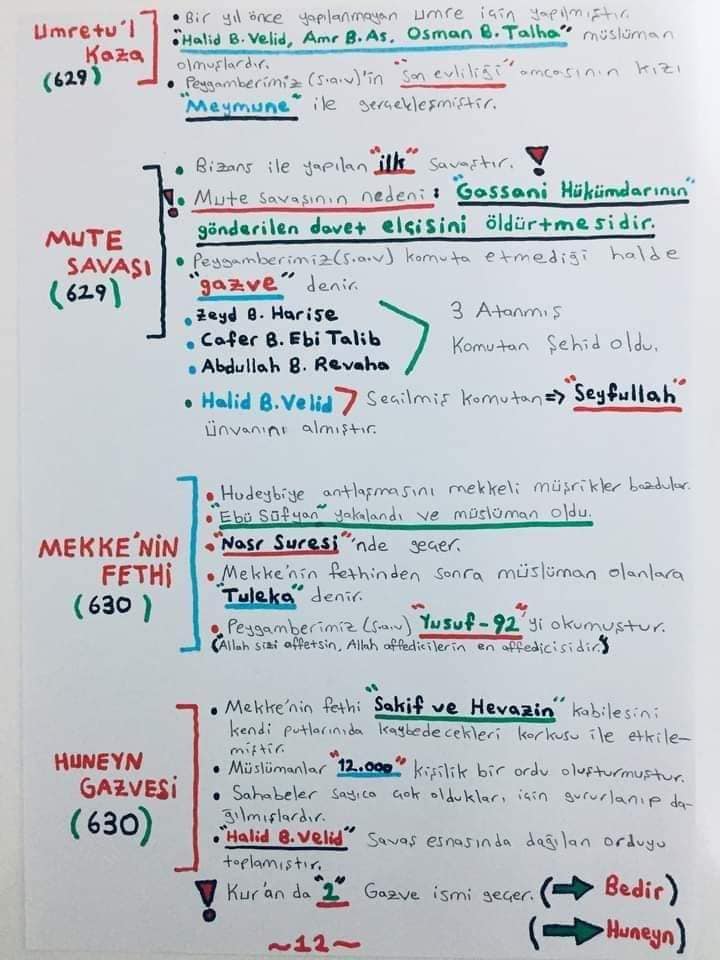 Umretu'l Kaza (629)
• Bir yıl önce yapılanmayan umre için yapılmıştır.
"Halid B. Velid, Amr B. As, Osman B. Talha" müslüman
olmuşlardır.
• Peygamberimiz (s.a.v)'in "Son evliliği" amcasının kızı
"Meymune" ile gerçekleşmiştir.
MUTE SAVAŞI (629)
• Bizans ile yapılan "ilk" savaştır. !
! • Mute savaşının nedeni: "Gassani Hükümdarının"
gönderilen davet elçisini öldürtmesidir.
• Peygamberimiz(s.a.v) komuta etmediği halde
"gazve" denir.
• Zeyd B. Harise
• Cafer B. Ebi Talib
• Abdullah B. Revaha
3 Atanmış
Komutan Şehid oldu.
• Halid B. Velid > Seçilmiş komutan => "Seyfullah"
ünvanını almıştır.
MEKKE'NİN FETHİ (630)
• Hudeybiye antlaşmasını mekkeli müşrikler bozdular.
• "Ebü Süfyan" yakalandı ve müslüman oldu.
• "Nasr Suresi"'nde geçer.
• Mekke'nin fethinden sonra müslüman olanlara
"Tuleka" denir.
• Peygamberimiz (s.a.v) "Yusuf-92"yi okumuştur.
(Allah sizi affetsin, Allah affedicilerin en affedicisidir.)
HUNEYN GAZVESİ (630)
• Mekke'nin fethi "Sakif ve Hevazin" kabilesini
kendi putlarınıda kaybedecekleri korkusu ile etkile-
miştir.
• Müslümanlar "12.000" kişilik bir ordu oluşturmuştur.
• Sahabeler sayıca çok oldukları için gururlanıp da-
ğılmışlardır.
• "Halid B. Velid" Savaş esnasında dağılan orduyu
toplamıştır.
! Kur'an da "2" Gazve ismi geçer. (→ Bedir)
(→ Huneyn)
~12~